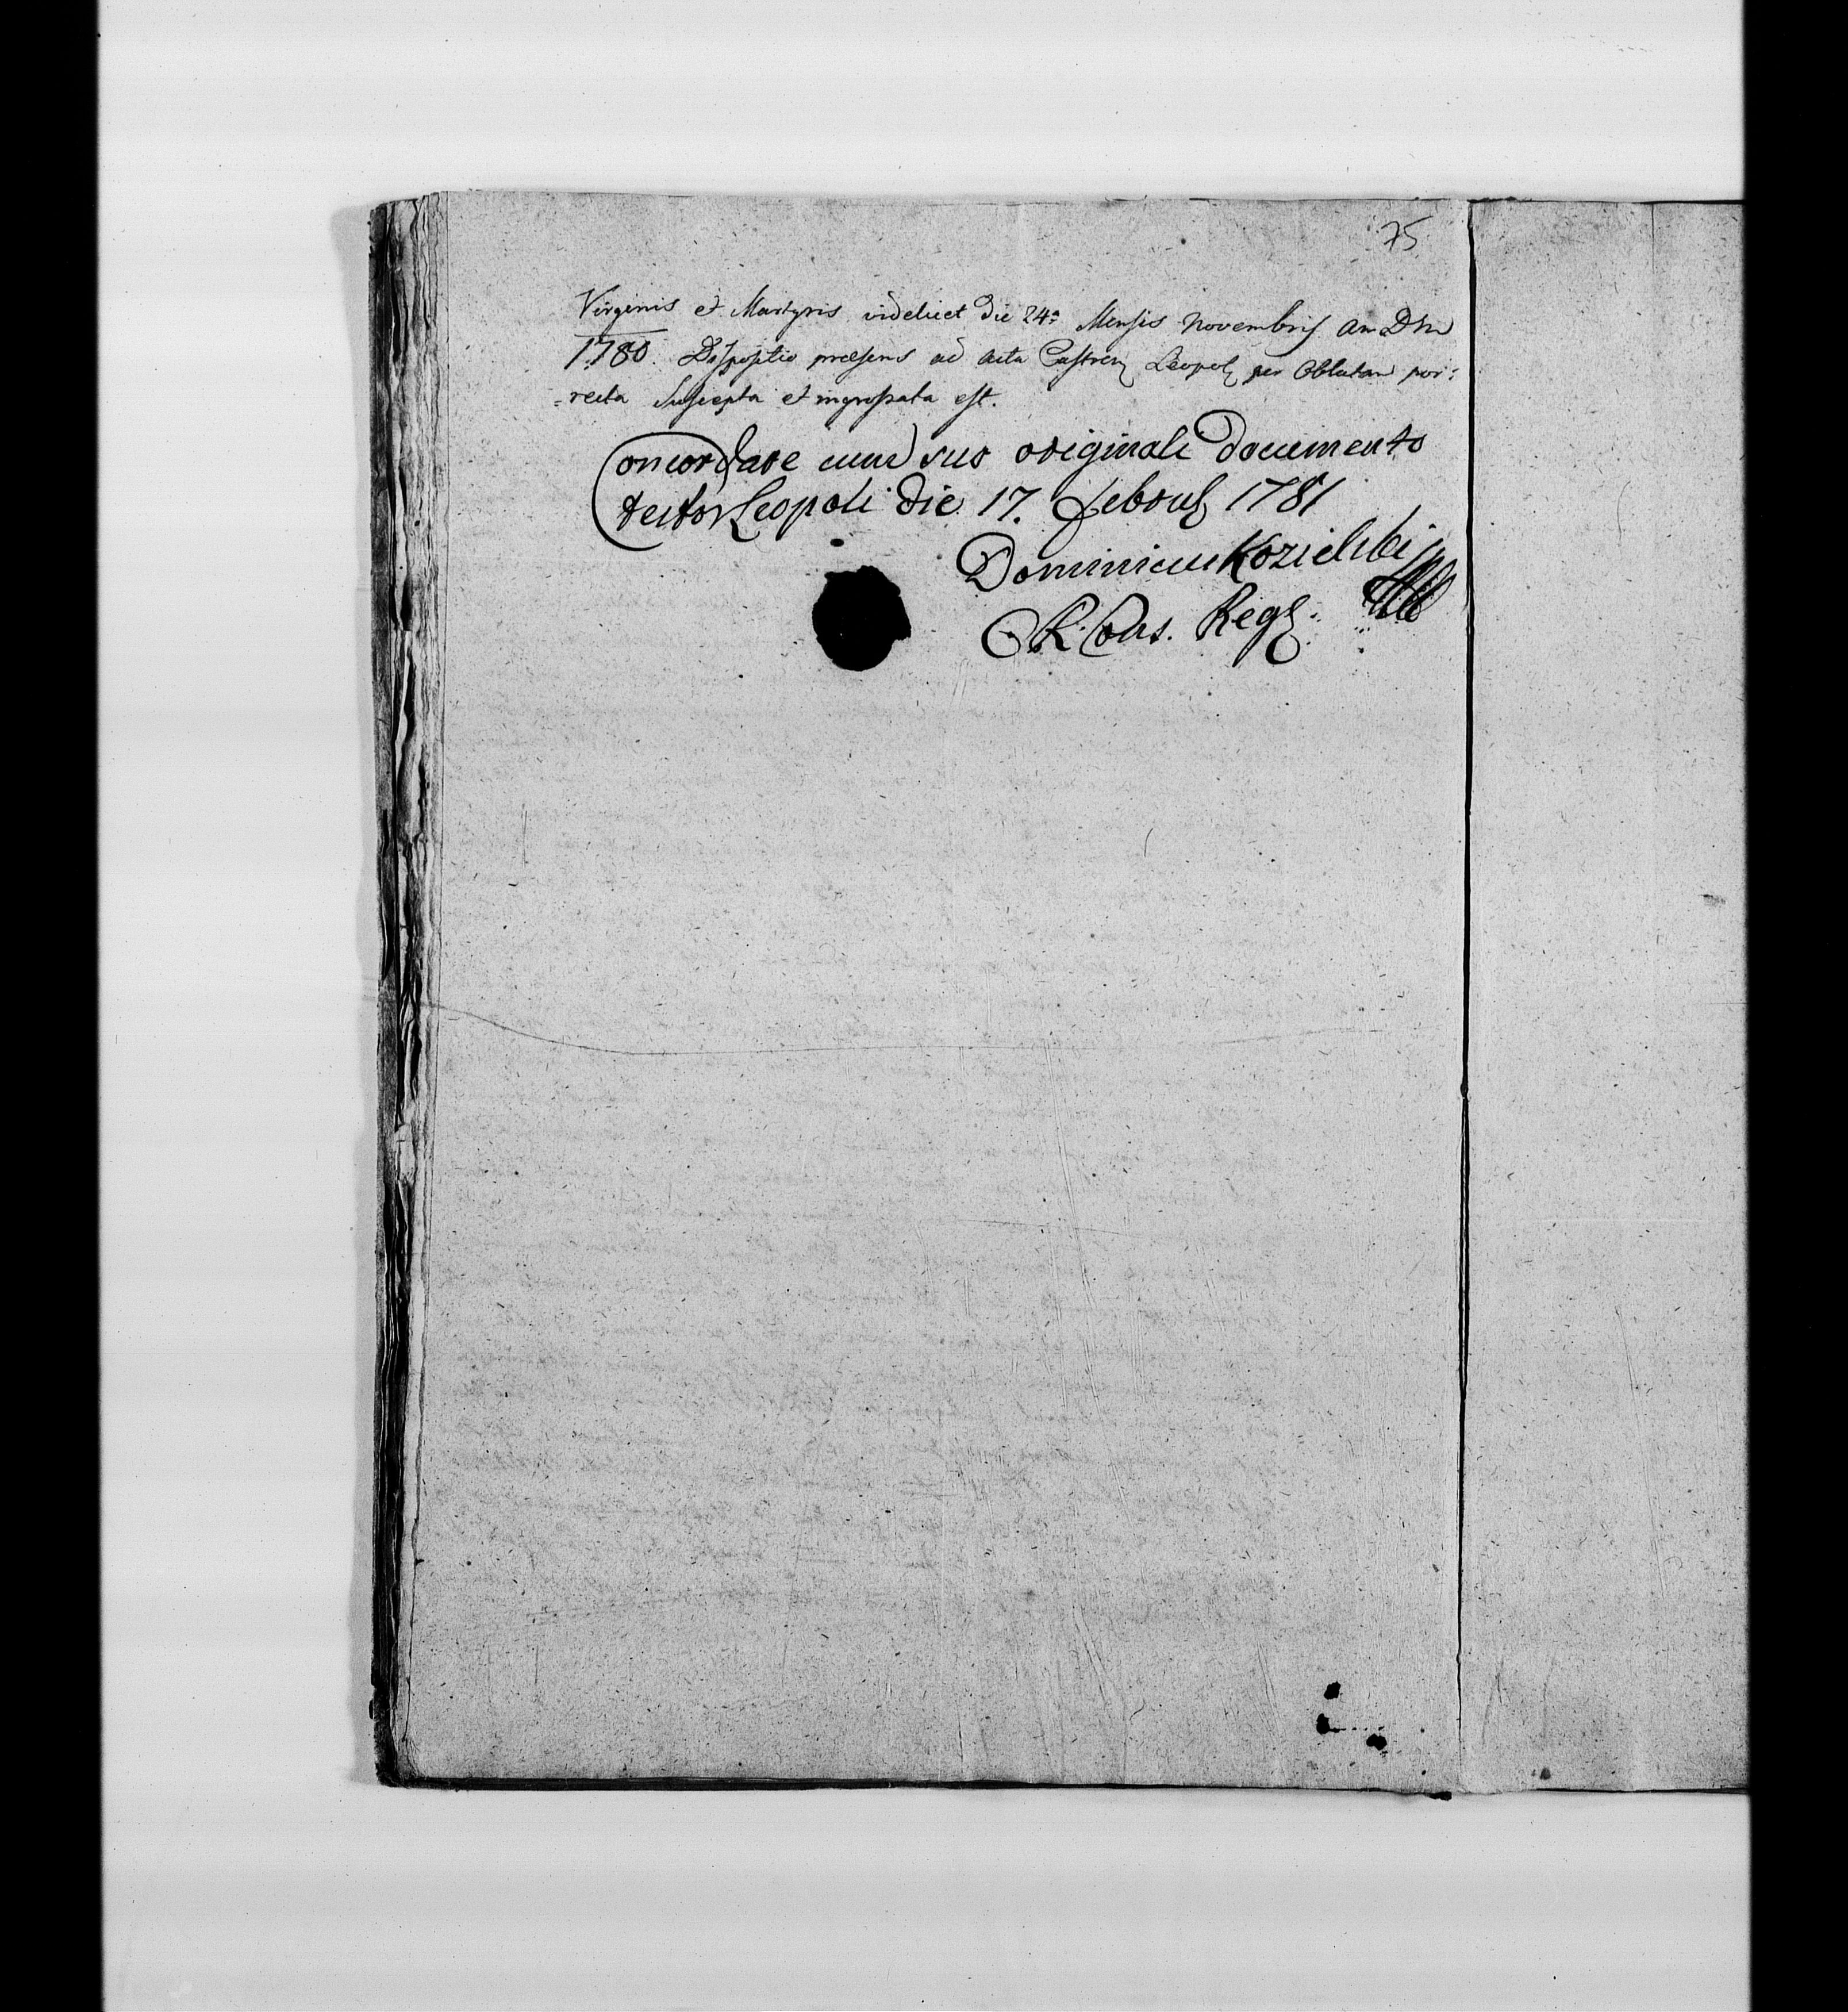 75
Virginis et Martyris videlicet die 24ª Mensis Novembris An Dni
1780. Dispositio praesens ad acta Castren Leopol per Oblatam por:
=recta Suscepta et ingrossata est.
Concordare cum suo originali Documento
testor Leopoli die 17. Febru 1781
Dominicus Kozielski
Regs.